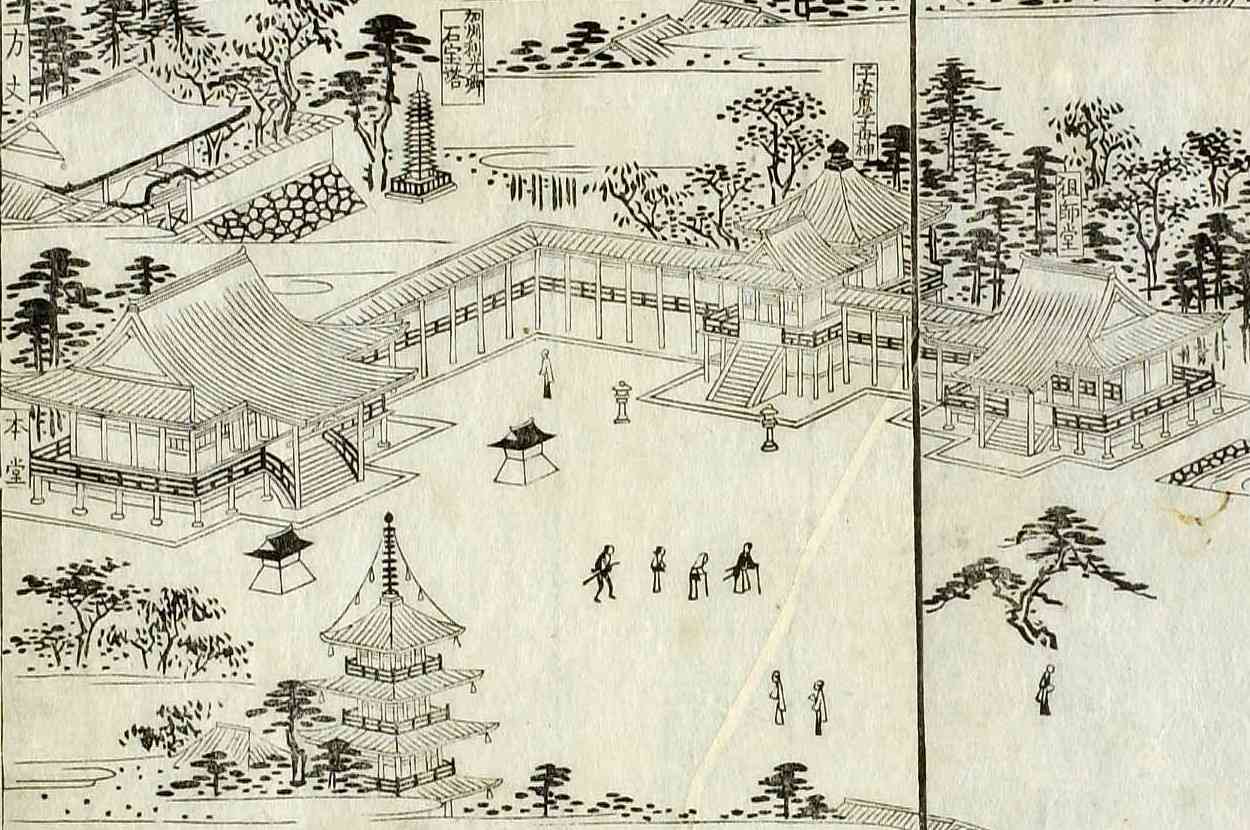 祖師堂
子安鬼子母神
加州利光卿
石宝塔
方丈
本堂